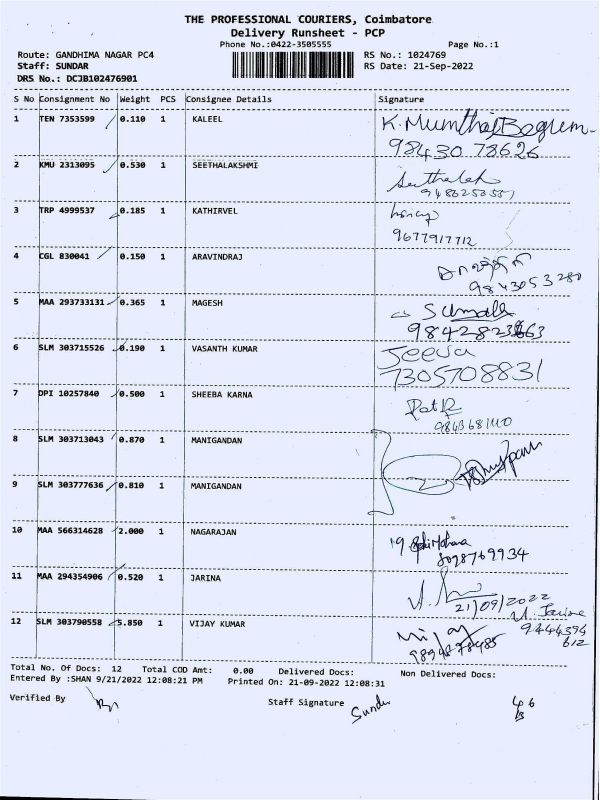 THE PROFESSIONAL COURIERS, Coimbatore
Delivery Runsheet - PCP
Phone No.:0422-3505555 Page No.:1
Route: GANDHIMA NAGAR PC4 RS No.: 1024769
Staff: SUNDAR RS Date: 21-Sep-2022
DRS No.: DCJB102476901
S No Consignment No Weight PCS Consignee Details Signature
1 TEN 7353599 0.110 1 KALEEL K. Mumthaj Begum
98430 78626
2 KMU 2313095 0.530 1 SEETHALAKSHMI
3 TRP 4999537 0.185 1 KATHIRVEL
9677917712
4 CGL 830041 0.150 1 ARAVINDRAJ
9843053280
5 MAA 293733131 0.365 1 MAGESH
6 SLM 303715526 0.190 1 VASANTH KUMAR Jeeva
7305708831
7 DPI 10257840 0.500 1 SHEEBA KARNA
8 SLM 303713043 0.870 1 MANIGANDAN
9 SLM 303777636 0.810 1 MANIGANDAN
10 MAA 566314628 2.000 1 NAGARAJAN
8098769934
11 MAA 294354906 0.520 1 JARINA
21/09/2022
12 SLM 303790558 5.850 1 VIJAY KUMAR Vijay
9444394
612
Total No. Of Docs: 12 Total COD Amt: 0.00 Delivered Docs: Non Delivered Docs:
Entered By :SHAN 9/21/2022 12:08:21 PM Printed On: 21-09-2022 12:08:31
Verified By Staff Signature Sunder